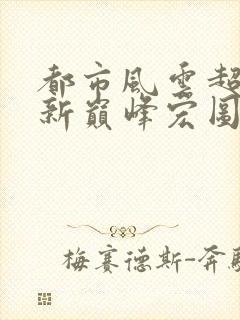 都市風雲超
新巔峰宏圖
梅賽德斯-奔馳